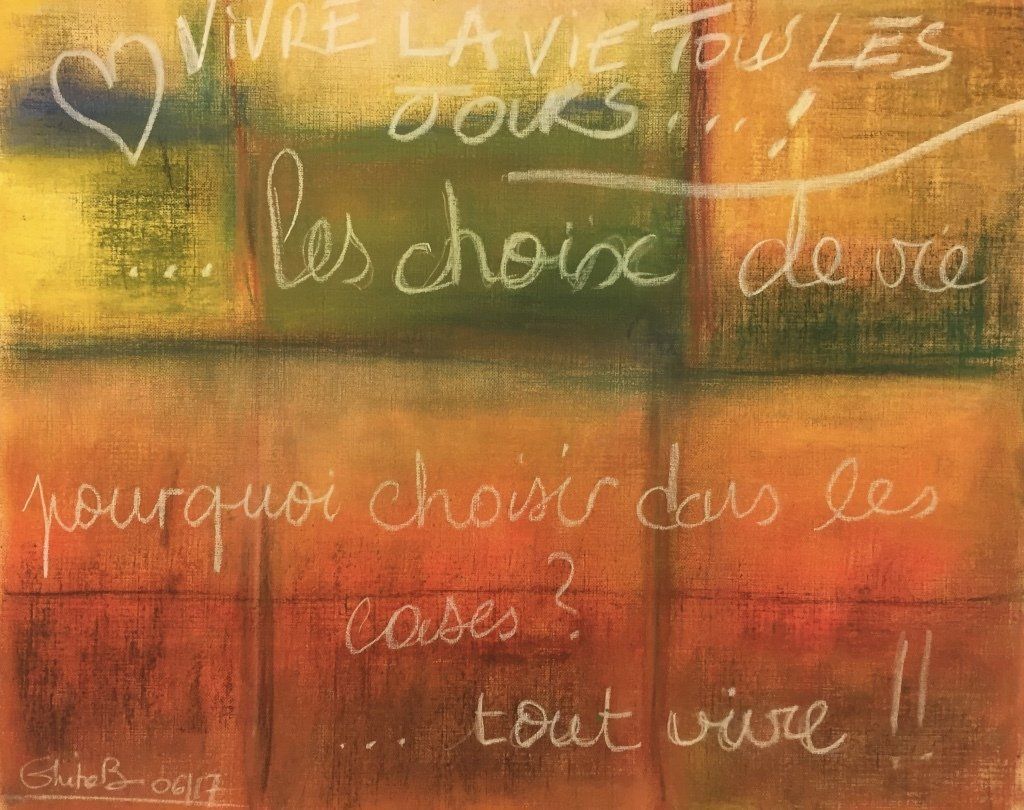 VIVRE LA VIE TOUS LES
JOURS....!
... les choix de vie
pourquoi choisir dans les
cases ?
... tout vivre !!
GhitaB 06/17